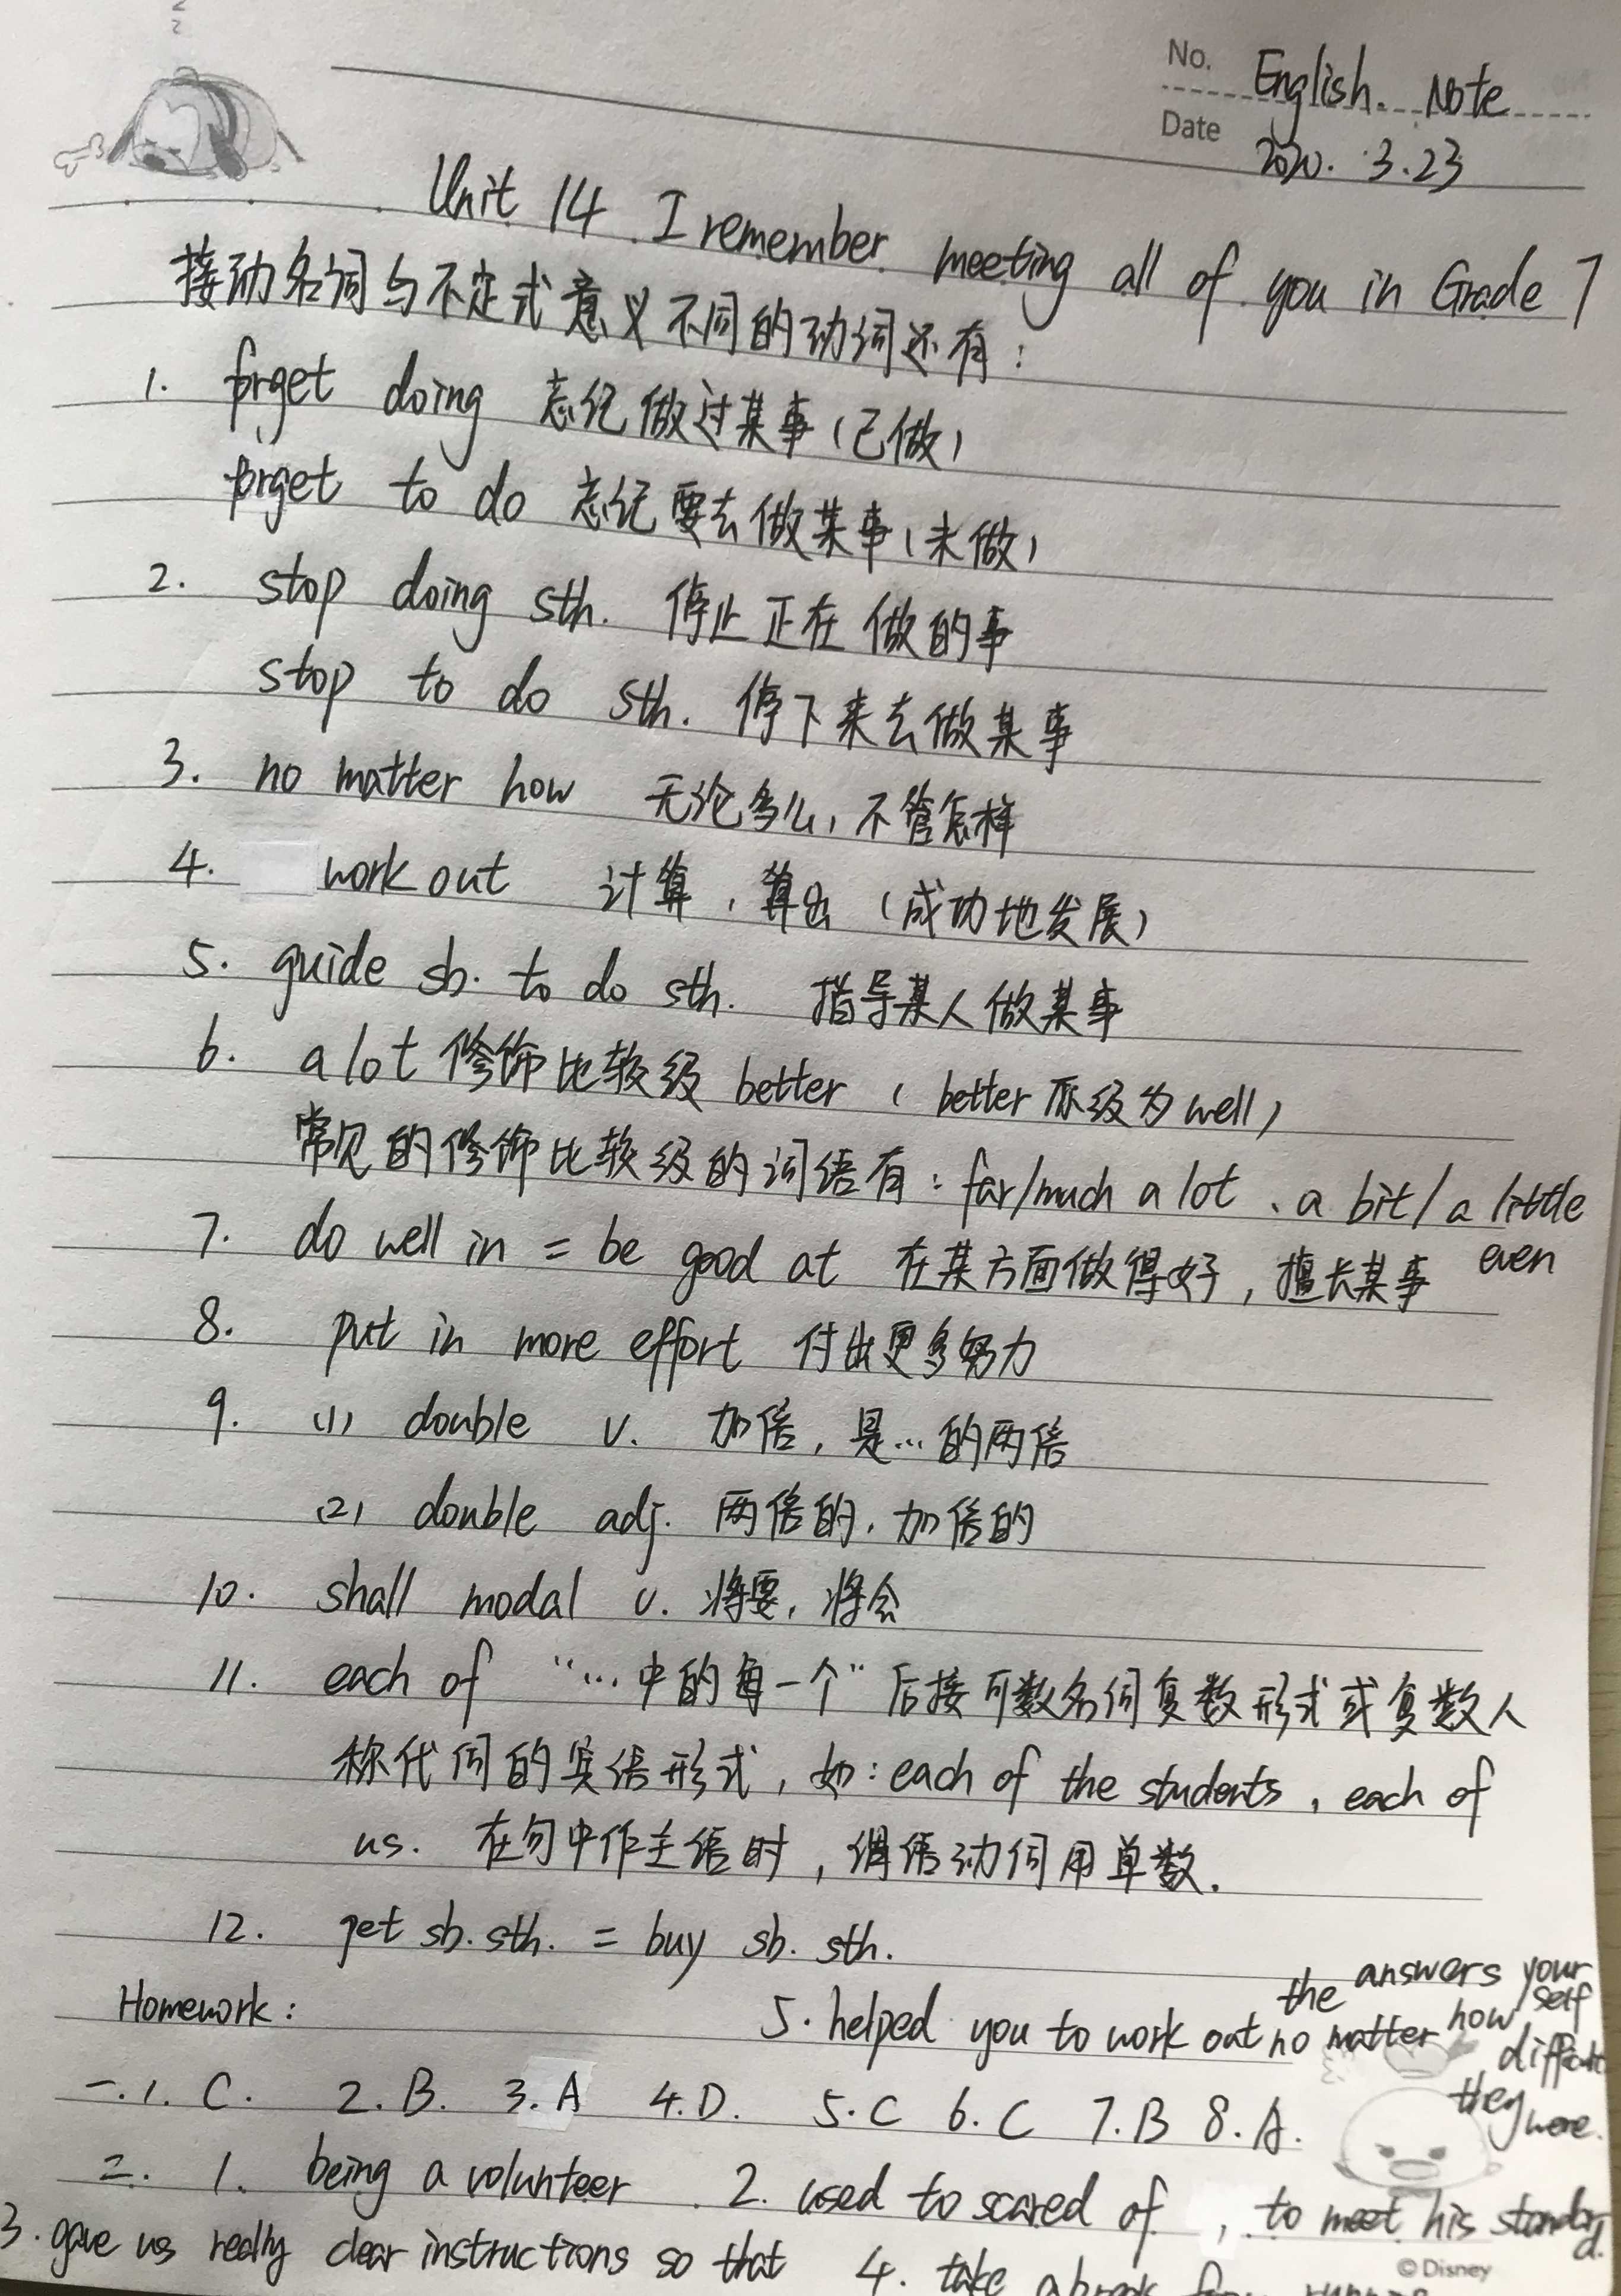 No. English. Note
Date 2020. 3.23
Unit 14 I remember meeting all of you in Grade 7
接动名词与不定式意义不同的动词还有：
1. forget doing 忘记做过某事（已做）
forget to do 忘记要去做某事（未做）
2. stop doing sth. 停止正在做的事
stop to do sth. 停下来去做某事
3. no matter how 无论多么，不管怎样
4. work out 计算，算出（成功地发展）
5. guide sb. to do sth. 指导某人做某事
6. a lot 修饰比较级 better （better 原级为 well）
常见的修饰比较级的词语有：far/much a lot 、a bit/a little
even
7. do well in = be good at 在某方面做得好，擅长某事
8. put in more effort 付出更多努力
9. (1) double v. 加倍，是…的两倍
(2) double adj. 两倍的，加倍的
10. shall modal v. 将要，将会
11. each of “…中的每一个” 后接可数名词复数形式或复数人
称代词的宾语形式，如：each of the students，each of
us. 在句中作主语时，谓语动词用单数.
12. get sb. sth. = buy sb. sth.
Homework:
5. helped you to work out the answers yourself
no matter how difficult
they were.
一.1. C. 2. B. 3. A 4. D. 5. C 6. C 7. B 8. A.
二. 1. being a volunteer 2. used to scared of , to meet his standard.
3. gave us really clear instructions so that 4. take a break from
© Disney